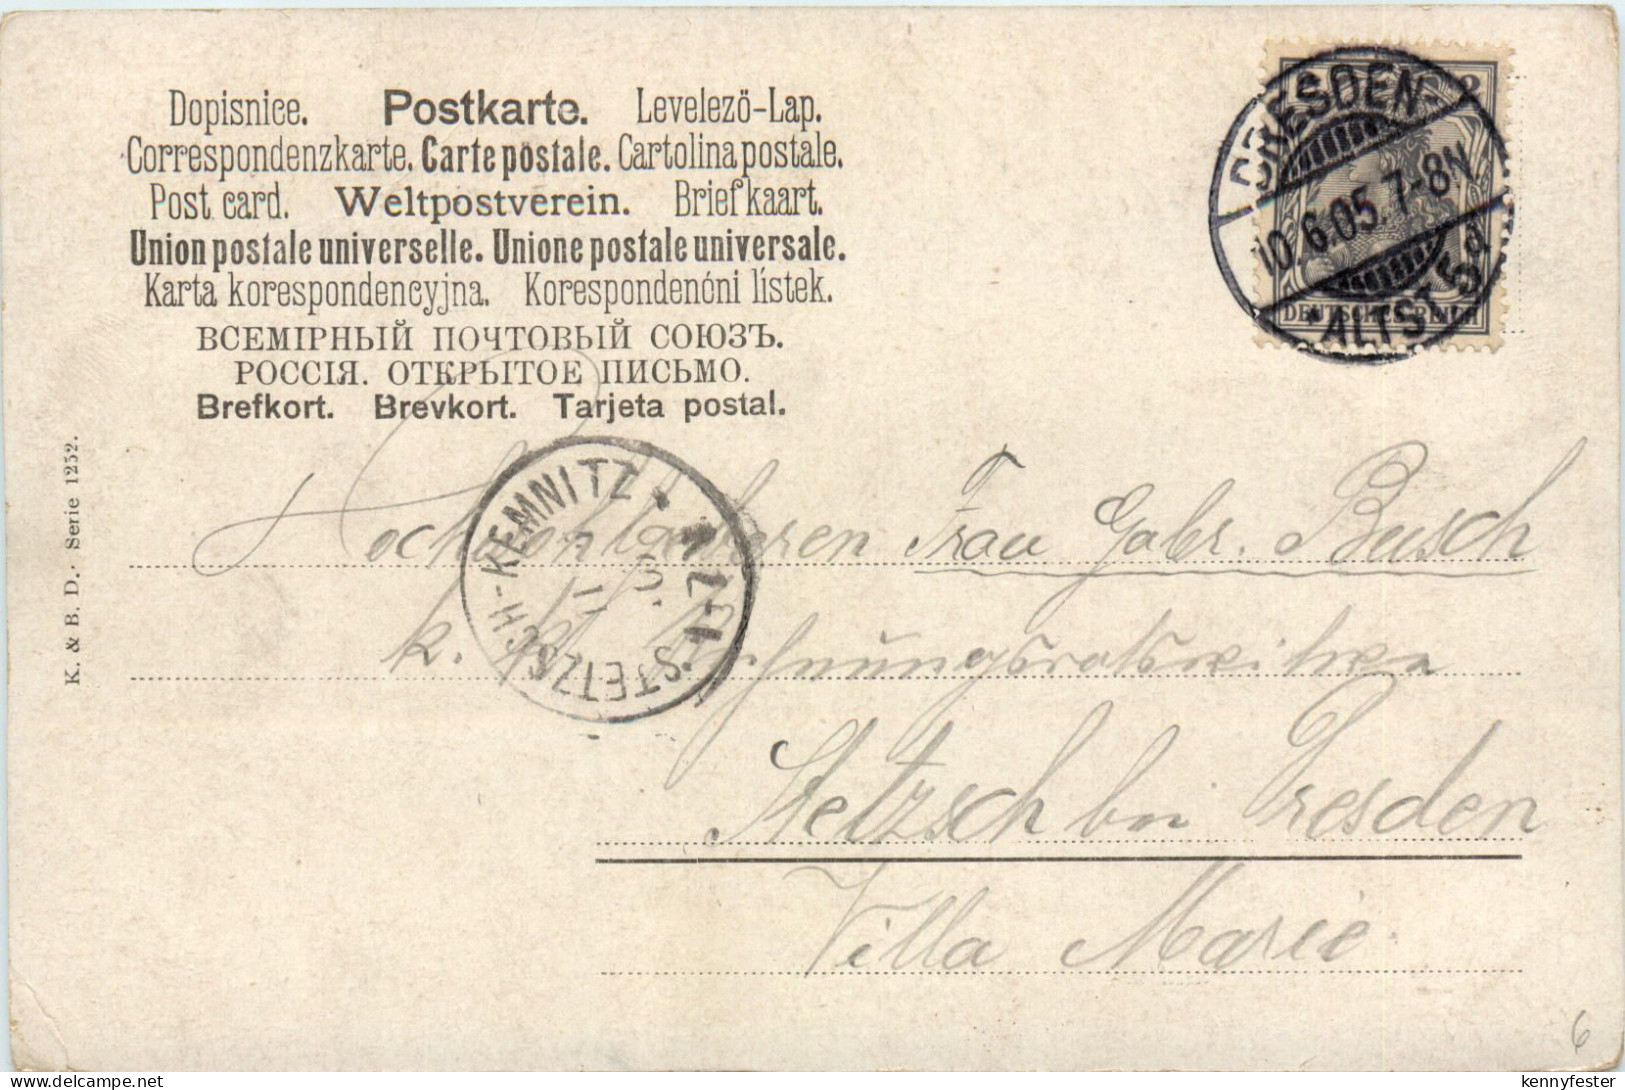 Dopisnice. Postkarte. Levelező-Lap.
Correspondenzkarte. Carte postale. Cartolina postale.
Post card. Weltpostverein. Briefkaart.
Union postale universelle. Unione postale universale.
Karta korespondencyjna. Korespondenóni lístek.
ВСЕМІРНЫЙ ПОЧТОВЫЙ СОЮЗЪ.
РОССІЯ. ОТКРЫТОЕ ПИСЬМО.
Brefkort. Brevkort. Tarjeta postal.
DRESDEN-
10.6.05. 7-8N
ALTST. 5d
2
DEUTSCHES REICH
K. & B. D. Serie 1252.
STETZSCH-KEMNITZ
Hochwohlgeboren Frau Gabr. Busch
k. Rechnungsratswitwe
Stetzsch bei Dresden
Villa Marie
6
kennyfester